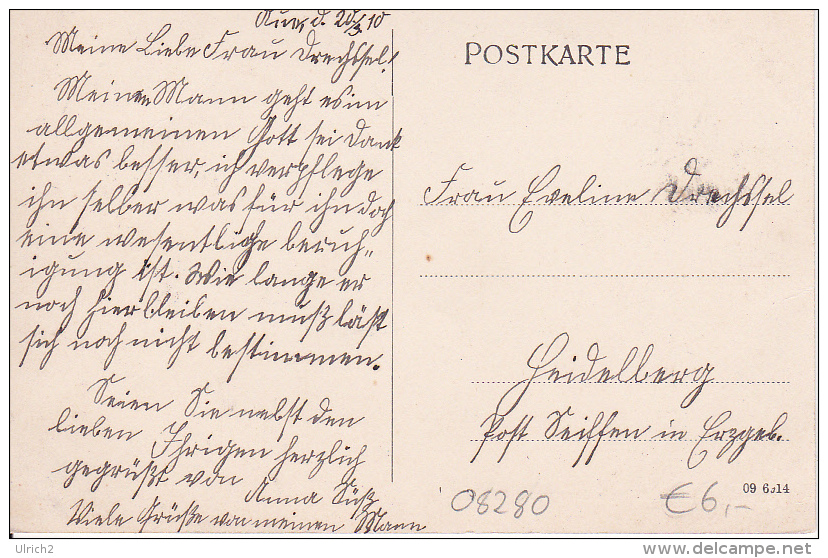 Aue, d. 20/3. 10
Meine Liebe Frau Drechsel!
Meinem Mann geht es im
allgemeinen Gott sei Dank
etwas besser, ich verpflege
ihn selber was für ihn doch
eine wesentliche beruh„
igung ist. Wie lange er
noch hierbleiben muß läßt
sich noch nicht bestimmen.
Seien Sie nebst den
lieben Ihrigen herzlich
gegrüßt von
Anna Süß
Viele Grüße von meinen Mann
POSTKARTE
Frau Eveline Drechsel
Heidelberg
Post Seiffen in Erzgeb.
09 6914
08280
€6,-
Ulrich2
delcampe.net